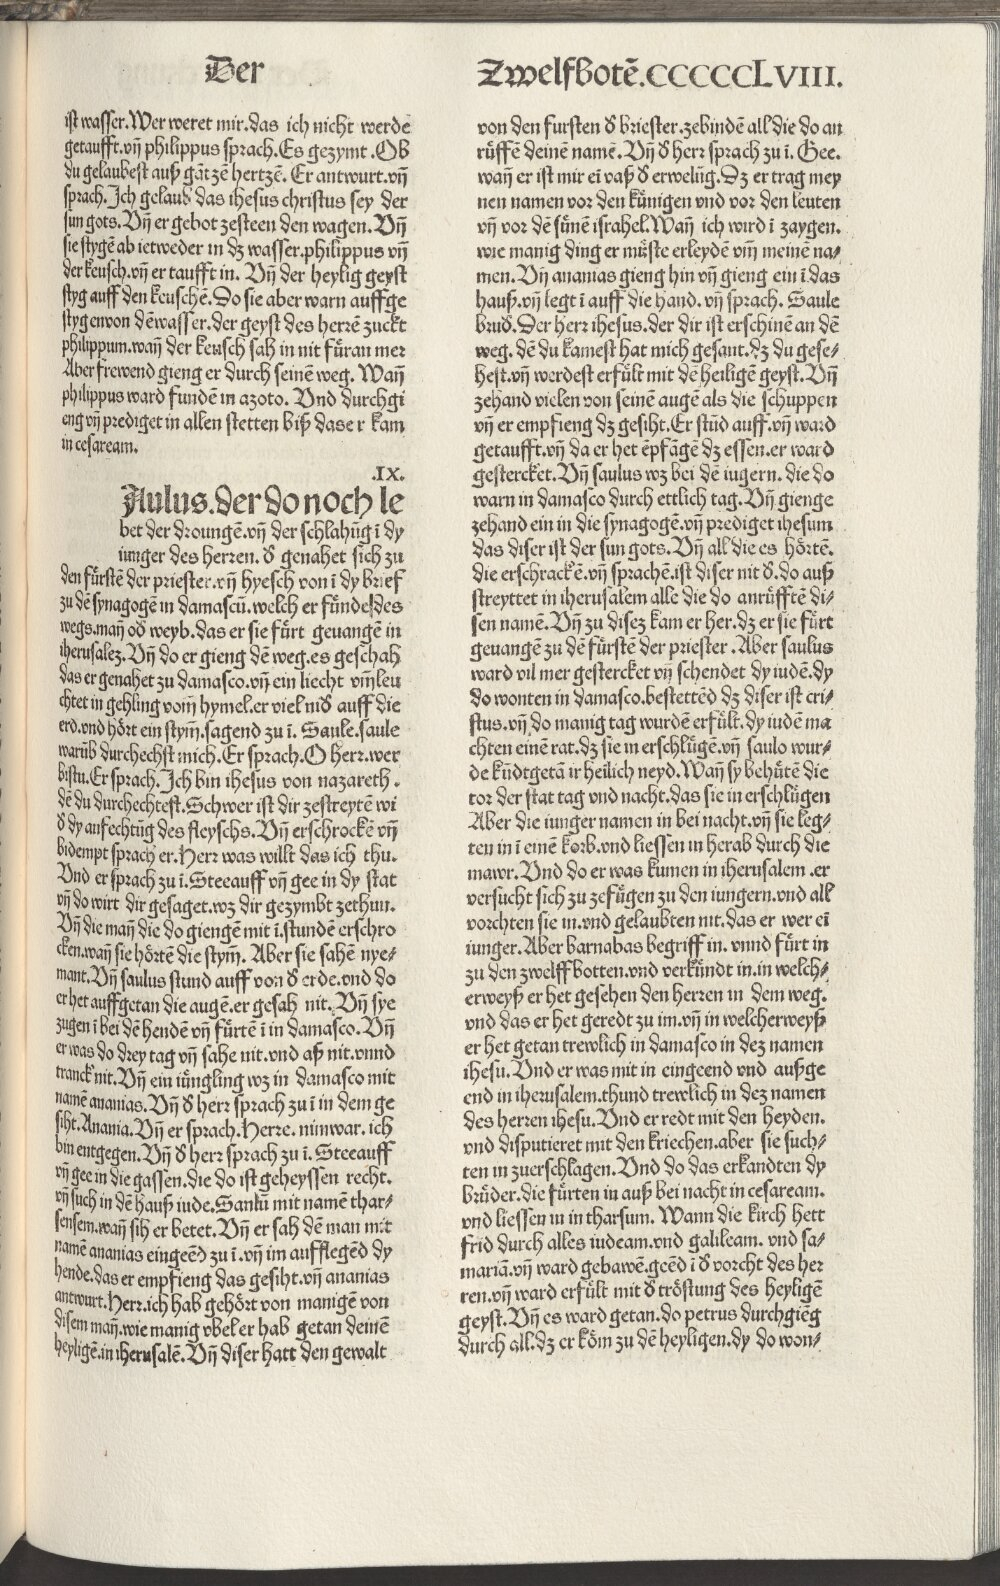 Der
Zwelfbotē.CCCCCLVIII.
ist wasser.Wer weret mir.das ich nicht werde
getaufft.vn̄ philippus sprach.Es gezymt.Ob
du gelaubest auß gātzē hertzē. Er antwurt.vn̄
sprach.Ich gelaub das ihesus christus sey der
sun gots.Vn̄ er gebot zesteen den wagen.Vn̄
sie stygē ab ietweder in dz wasser.philippus vn̄
der keusch.vn̄ er taufft in. Vn̄ der heylig geyst
styg auff den keuschē.Do sie aber warn auffge
stygen von dē wasser.der geyst des herrē zuckt
philippum.wan̄ der keusch sah in nit fůran mer
Aber frewend gieng er durch seinē weg. Wan̄
philippus ward fundē in azoto. Vnd durchgi
eng vn̄ prediget in allen stetten biß das er kam
in cesaream.
.IX.
Aulus.der do noch le
bet der droungē.vn̄ der schlahūg ī dy
iunger des herren. ď genahet sich zu
den fürstē der priester.vn̄ hyesch von ī dy brief
zu dē synagogē in damascū.welch er fündet des
wegs.man̄ oď weyb.das er sie fürt geuangē in
iherusalez.Vn̄ do er gieng dē weg.es geschah
das er genahet zu damasco.vn̄ ein liecht vm̄leu
chtet in gehling vom̄ hymel.er viel niď auff die
erd.vnd hört ein stym̄.sagend zu ī. Saule.saule
warūb durchechst mich.Er sprach.O herr.wer
bistu.Er sprach.Ich bin ihesus von nazareth.
dē du durchechtest.Schwer ist dir zestreytē wi
ď dy anfechtūg des fleyschs.Vn̄ erschrockē vn̄
bidempt sprach er.Herr was willt das ich thu.
Vnd er sprach zu ī.Steeauff vn̄ gee in dy stat
vn̄ do wirt dir gesaget.wz dir gezymbt zethun.
Vn̄ die man̄ die do giengē mit ī.stundē erschro
cken.wan̄ sie hörtē die stym̄. Aber sie sahē nye-
mant.Vn̄ saulus stund auff von ď erde.vnd do
er het auffgetan die augē.er gesah nit. Vn̄ sye
zugen ī bei dē hendē vn̄ fürtē ī in damasco. Vn̄
er was do drey tag vn̄ sahe nit.vnd aß nit.vnnd
tranck nit.Vn̄ ein iüngling wz in damasco mit
namē ananias.Vn̄ ď herr sprach zu ī in dem ge
siht.Anania.Vn̄ er sprach.Herre. nimwar. ich
bin entgegen.Vn̄ ď herr sprach zu ī. Steeauff
vn̄ gee in die gassen.die do ist geheyssen recht.
vn̄ such in dē hauß iude.Sanlū mit namē thar-
sensem.wan̄ sih er betet. Vn̄ er sah dē man mit
namē ananias eingeēd zu ī.vn̄ im aufflegēd dy
hende.das er empfieng das gesiht.vn̄ ananias
antwurt.Herr.ich hab gehört von manigē von
disem man̄.wie manig vbel er hab getan deinē
heyligē.in iherusalē.Vn̄ diser hatt den gewalt
von den fursten ď briester.zebindē all die do an
rüffē deinē namē.Vn̄ ď herr sprach zu ī. Gee.
wan̄ er ist mir eī vaß ď erwelūg.Dz er trag mey
nen namen vor den künigen vnd vor den leuten
vn̄ vor dē sünē israhel.Wan̄ ich wird ī zaygen.
wie manig ding er müste erleydē vm̄ meinē na-
men. Vn̄ ananias gieng hin vn̄ gieng ein ī das
hauß.vn̄ legt ī auff die hand. vn̄ sprach. Saule
bruď.Der herr ihesus.der dir ist erschinē an dē
weg. dē du kamest hat mich gesant.dz du gese-
hest.vn̄ werdest erfült mit dē heiligē geyst.Vn̄
zehand vielen von seinē augē als die schuppen
vn̄ er empfieng dz gesiht.Er stūd auff.vn̄ ward
getaufft.vn̄ da er het ēpfāgē dz essen.er ward
gestercket.Vn̄ saulus wz bei dē iugern. die do
warn in damasco durch ettlich tag.Vn̄ gienge
zehand ein in die synagogē.vn̄ prediget ihesum
das diser ist der sun gots.Vn̄ all die es hörtē.
die erschrackē.vn̄ sprachē.ist diser nit ď.do auß
streyttet in iherusalem alle die do anrüfftē di-
sen namē.Vn̄ zu disez kam er her.dz er sie fürt
geuangē zu dē fürstē der priester.Aber saulus
ward vil mer gestercket vn̄ schendet dy iudē.dy
do wonten in damasco.bestettēd dz diser ist cri-
stus.vn̄ do manig tag wurdē erfült.dy iudē ma
chten einē rat.dz sie in erschlügē.vn̄ saulo wur-
de kūdtgetā ir heilich neyd.Wan̄ sy behütē die
tor der stat tag vnd nacht.das sie in erschlügen
Aber die iunger namen in bei nacht.vn̄ sie leg-
ten in ī einē korb.vnd liessen in herab durch die
mawr. Vnd do er was kumen in iherusalem .er
versucht sich zu zefügen zu den iungern.vnd all
vorchten sie in.vnd gelaubten nit.das er wer eī
iunger.Aber barnabas begriff in. vnnd fürt in
zu den zwelffbotten.vnd verkündt in.in welch-
erweyß er het gesehen den herren in dem weg.
vnd das er het geredt zu im.vn̄ in welcherweyß
er het getan trewlich in damasco in dez namen
ihesu.Vnd er was mit in eingeend vnd außge
end in iherusalem.thund trewlich in dez namen
des herren ihesu.Vnd er redt mit den heyden.
vnd disputieret mit den kriechen.aber sie such-
ten in zuerschlagen.Vnd do das erkandten dy
brüder.die fürten in auß bei nacht in cesaream.
vnd liessen in in tharsum. Wann die kirch hett
frid durch alles iudeam.vnd galileam. vnd sa-
mariā.vn̄ ward gebawē.geēd ī ď vorcht des her
ren.vn̄ ward erfült mit ď tröstung des heyligē
geyst.Vn̄ es ward getan.do petrus durchgiēg
durch all.dz er köm zu dē heyligen.dy do won-